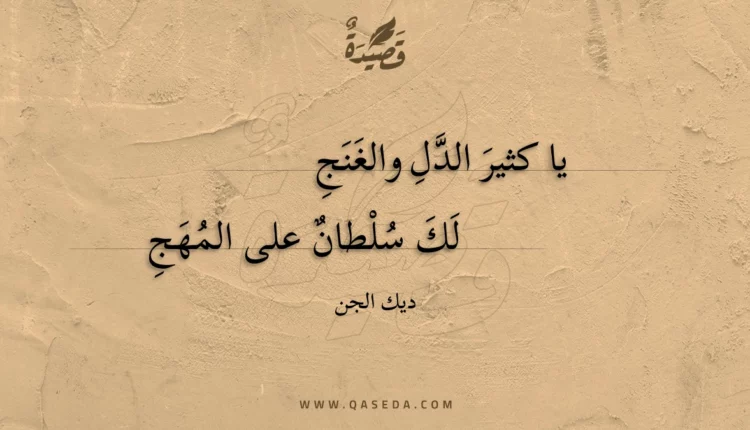 قَصِيدَةٌ
يا كثيرَ الدَّلِ والغَنَجِ
لَكَ سُلْطانٌ على المُهَجِ
ديك الجن
WWW.QASEDA.COM